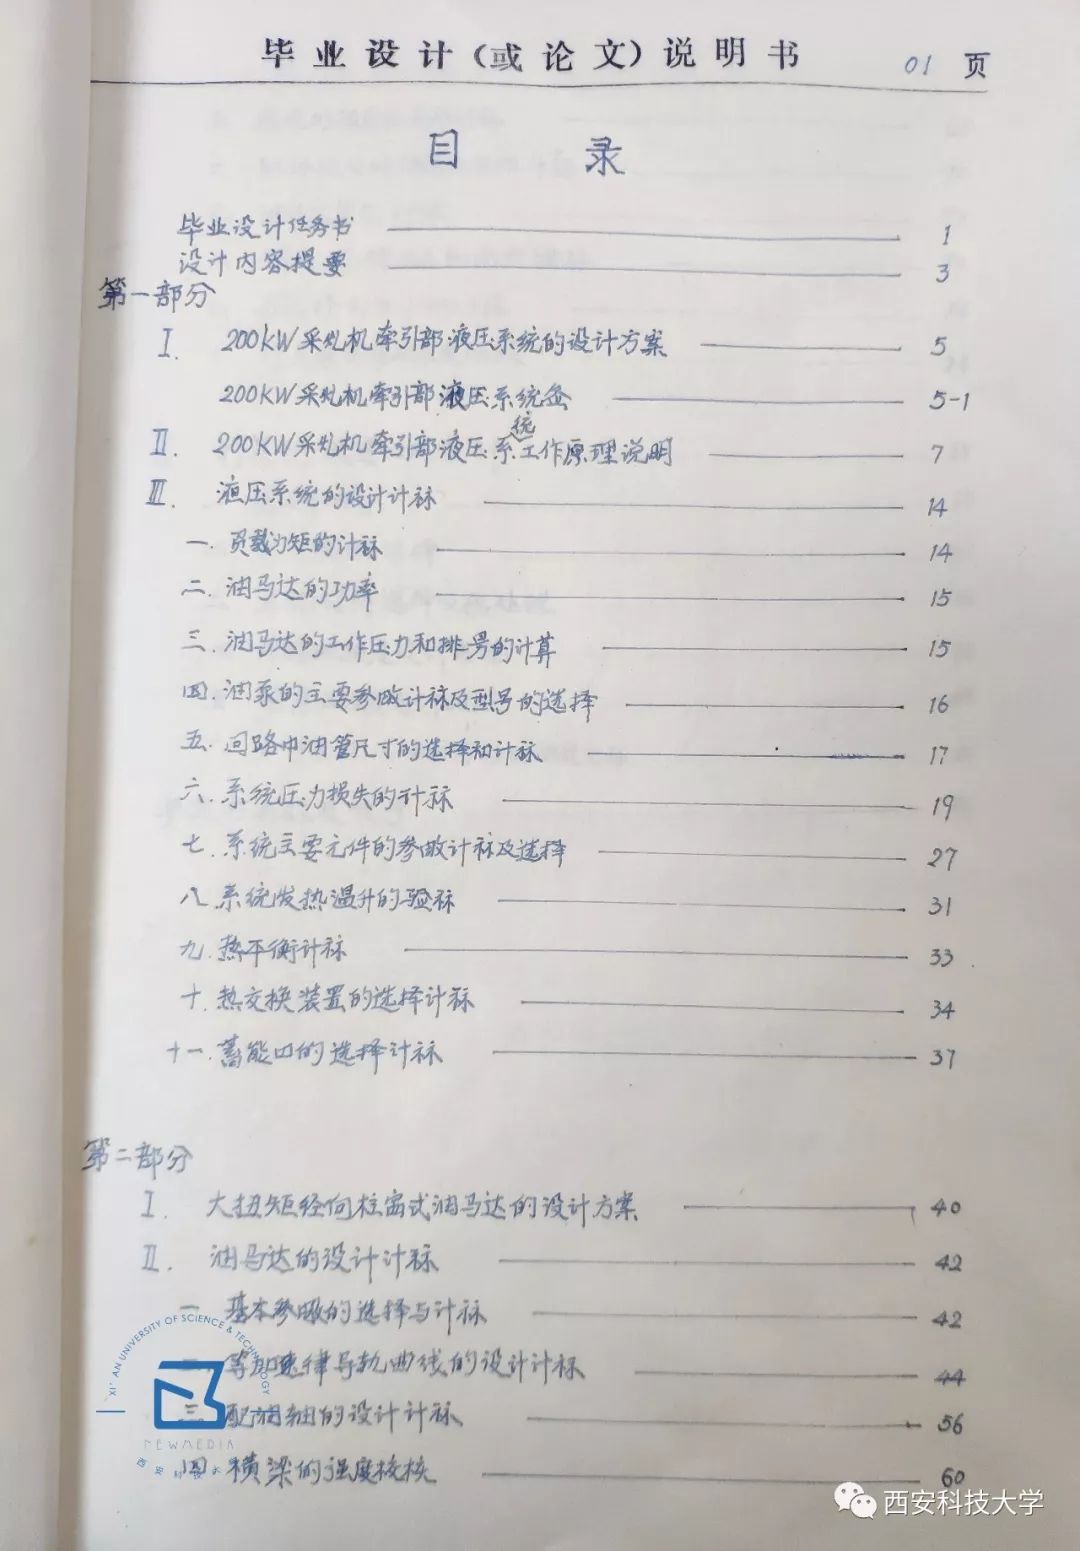 毕业设计(或论文)说明书 01 页
目 录
毕业设计任务书 1
设计内容提要 3
第一部分
I. 200KW采煤机牵引部液压系统的设计方案 5
200KW采煤机牵引部液压系统图 5-1
II. 200KW采煤机牵引部液压系统工作原理说明 7
III. 液压系统的设计计祘 14
一. 负载力矩的计祘 14
二. 油马达的功率 15
三. 油马达的工作压力和排量的计算 15
四. 油泵的主要参数计祘及型号的选择 16
五. 回路中油管尺寸的选择和计祘 17
六. 系统压力损失的计祘 19
七. 系统主要元件的参数计祘及选择 27
八. 系统发热温升的验祘 31
九. 热平衡计祘 33
十. 热交换装置的选择计祘 34
十一. 蓄能口的选择计祘 37
第二部分
I. 大扭矩径向柱塞式油马达的设计方案 40
II. 油马达的设计计祘 42
一 基本参数的选择与计祘 42
二. 等加速律导轨曲线的设计计祘 44
三 配油轴的设计计祘 56
四 横梁的强度校核 60
XI'AN UNIVERSITY OF SCIENCE & TECHNOLOGY
NEWMEDIA
西安科技大
西安科技大学